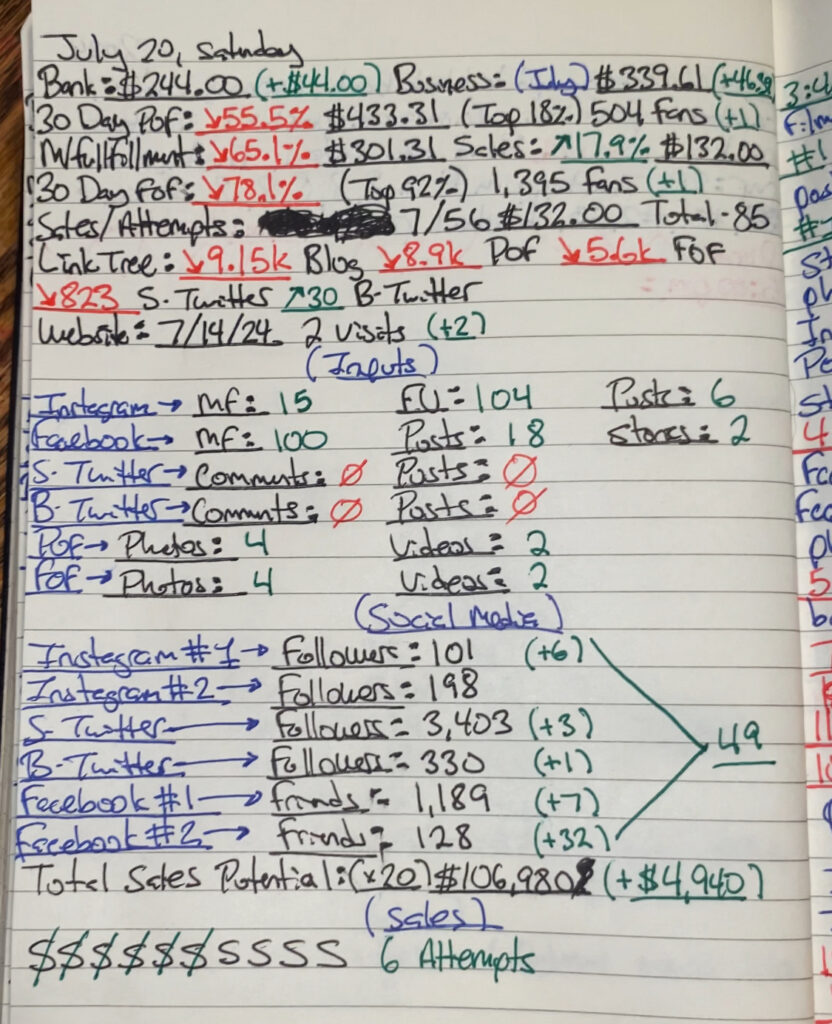 July 20, Saturday
Bank: $244.00 (+$44.00) Business: (July) $339.61 (+46.
30 Day POF: ↘55.5% $433.31 (Top 18%) 504 fans (+1)
W/fullfollment: ↘65.1% $301.31 Sales: ↗17.9% $132.00
30 Day FOF: ↘78.1% (Top 92%) 1,395 fans (+1)
Sales/Attempts: 7/56 $132.00 Total-85
LinkTree: ↘9.15k Blog ↘8.9k POF ↘5.6k FOF
↘823 S-Twitter ↗30 B-Twitter
Website: 7/14/24 2 visits (+2)
(Inputs)
Instegram→ MF: 15 F.U: 104 Posts: 6
Facebook→ MF: 100 Posts: 18 Stories: 2
S-Twitter→ Comments: Ø Posts: Ø
B-Twitter→ Comments: Ø Posts: Ø
POF→ Photos: 4 Videos: 2
FOF→ Photos: 4 Videos: 2
(Social Media)
Instegram #1→ Followers: 101 (+6)
Instegram #2→ Followers: 198
S-Twitter→ Followers: 3,403 (+3)
49
B-Twitter→ Followers: 330 (+1)
Facebook #1→ friends: 1,189 (+7)
Facebook #2→ friends: 128 (+32)
Total Sales Potential: (x20) $106,980 (+$4,940)
(Sales)
$$$$$$SSSS 6 Attempts